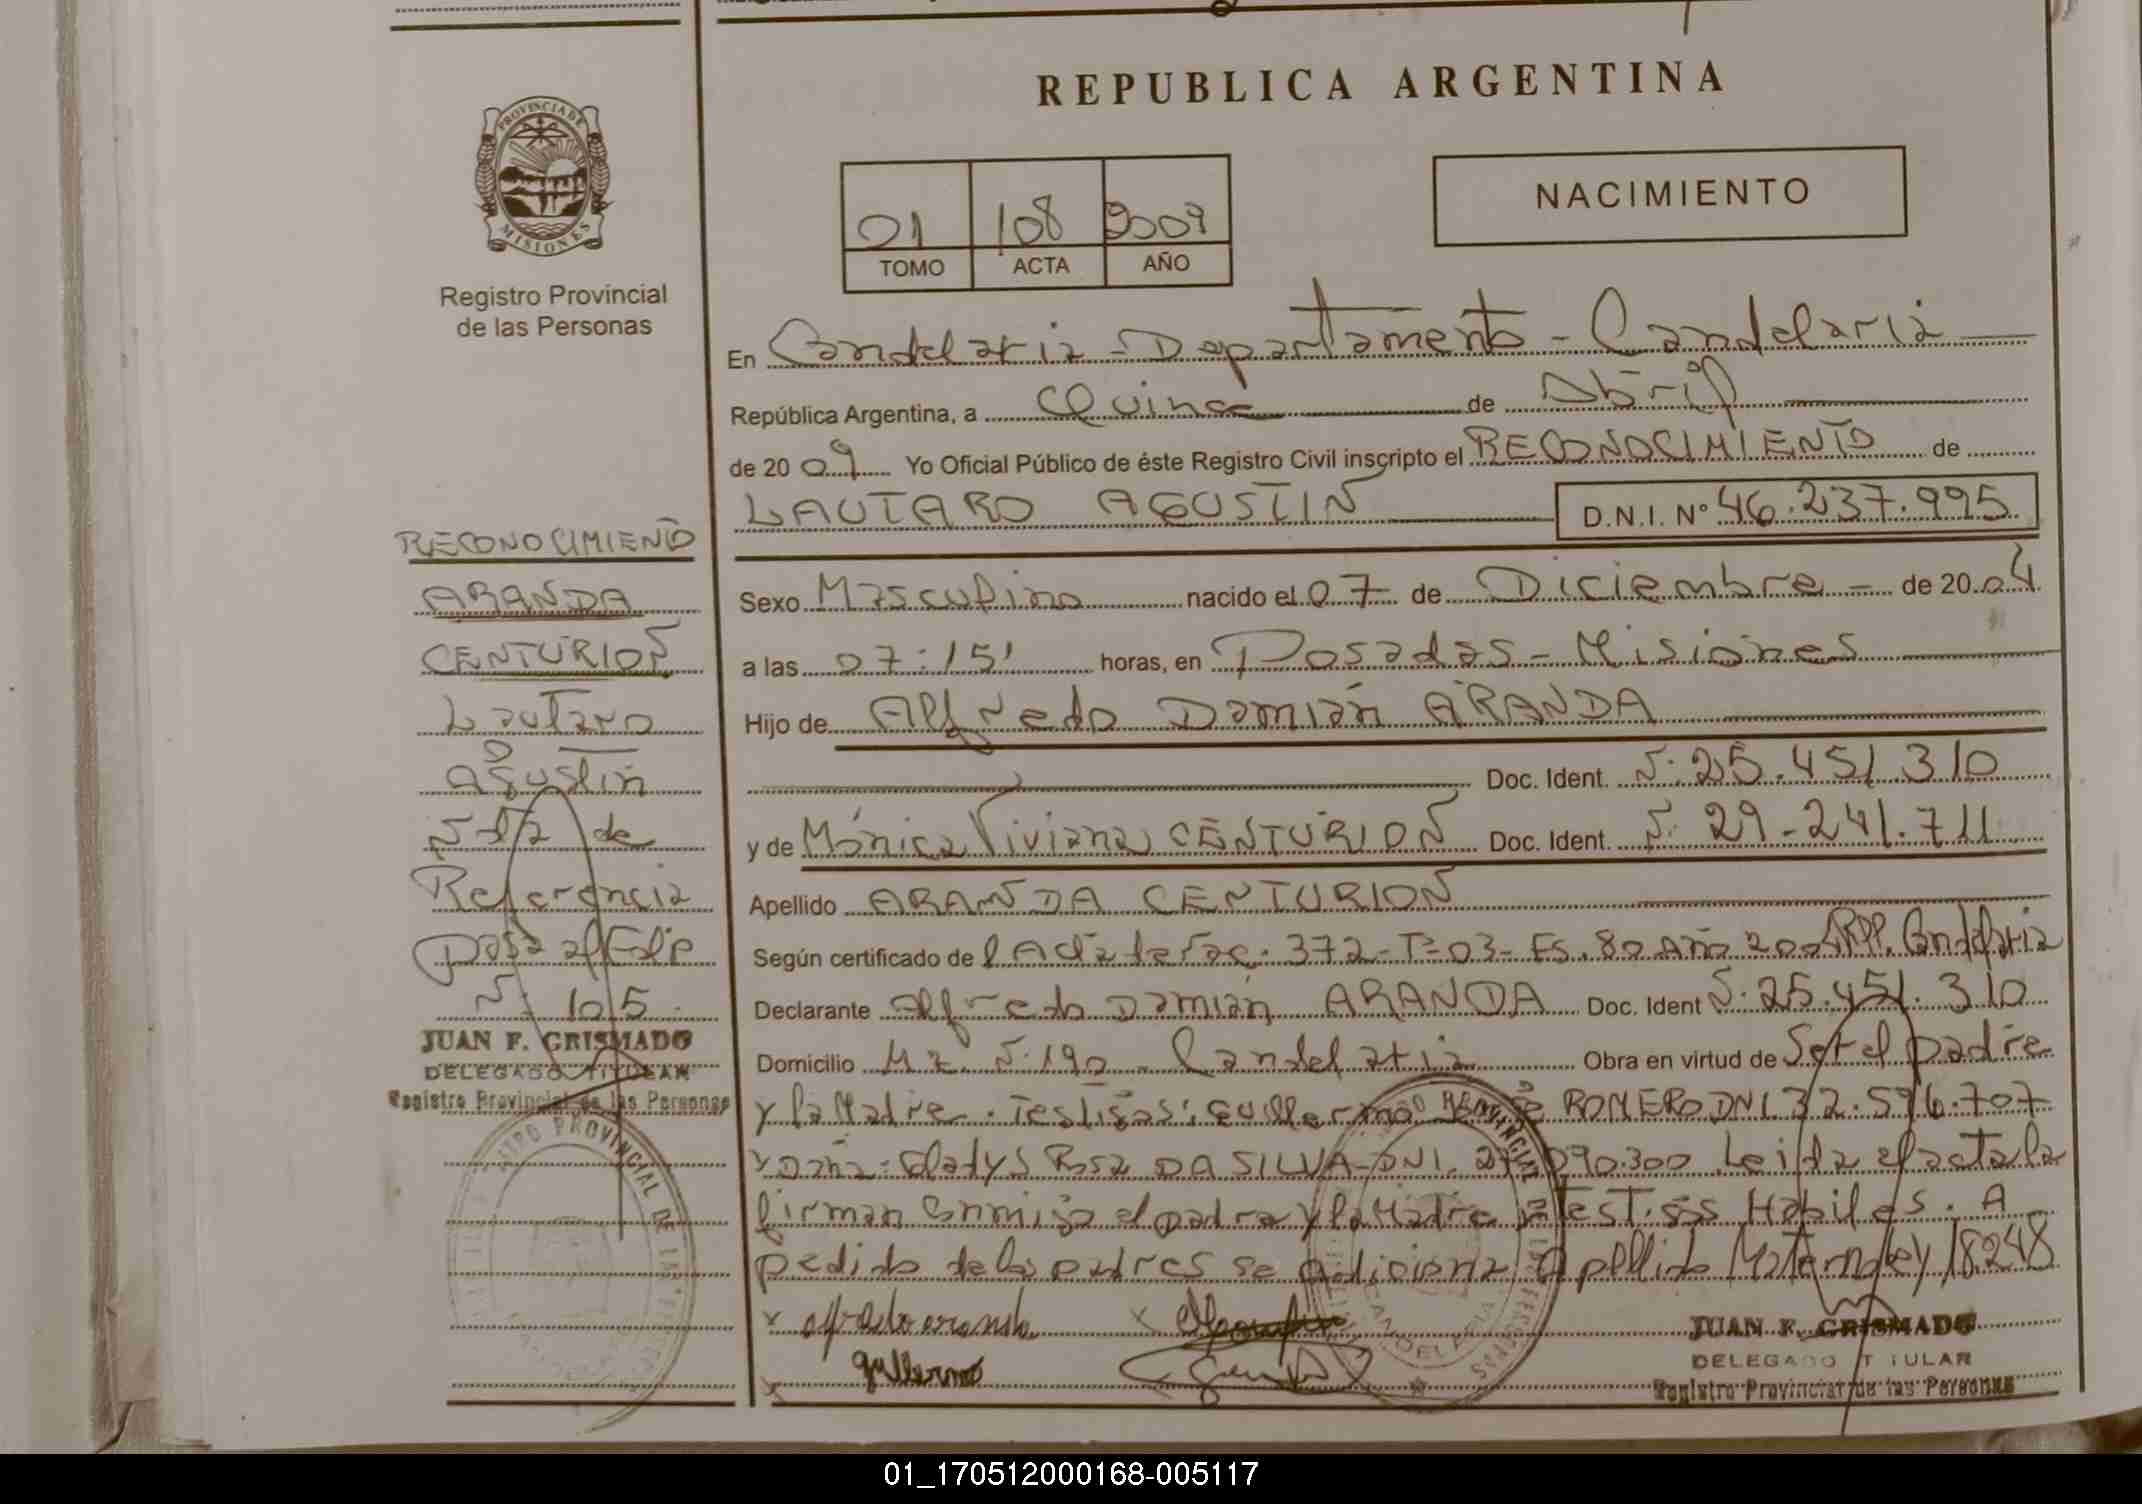 REPUBLICA ARGENTINA
PROVINCIA DE
MISIONES
Registro Provincial
de las Personas
01 108 2009
TOMO ACTA AÑO
NACIMIENTO
En Candelaria - Departamento - Candelaria
República Argentina, a Quince de Abril
de 20 09 Yo Oficial Público de éste Registro Civil inscripto el RECONOCIMIENTO de
LAUTARO AGUSTIN D.N.I. Nº 46.237.995
Sexo Masculino nacido el 07 de Diciembre - de 20 04
a las 07:15' horas, en Posadas - Misiones
Hijo de Alfredo Damián ARANDA
Doc. Ident. N: 25.451.310
y de Mónica Viviana CENTURION Doc. Ident. N: 29-241.711
Apellido ARANDA CENTURION
Según certificado de l Acta de Nac. 372-Tº03-Fs.80 Año 2004 RPP. Candelaria
Declarante Alfredo Damián ARANDA Doc. Ident N: 25.451.310
Domicilio Mz. N:190 Candelaria Obra en virtud de Ser el padre
y la Madre. Testigos: Guillermo ROMERO DNI 32.596.707
y Doña: Gladys Rosa DA SILVA-DNI. 27.090.300 Leida el acta la
firman conmigo el padre y la Madre y Testigos Habiles. A
pedido de los padres se adiciona Apellido Materno ley 18.248
alfredo aranda
guillermo
JUAN F. GRISMADO
DELEGADO TITULAR
Registro Provincial de las Personas
RECONOCIMIENTO
ARANDA
CENTURION
Lautaro
Agustin
Nota de
Referencia
Pasa al Folio
N: 105
JUAN F. GRISMADO
DELEGADO TITULAR
Registro Provincial de las Personas
01_170512000168-005117